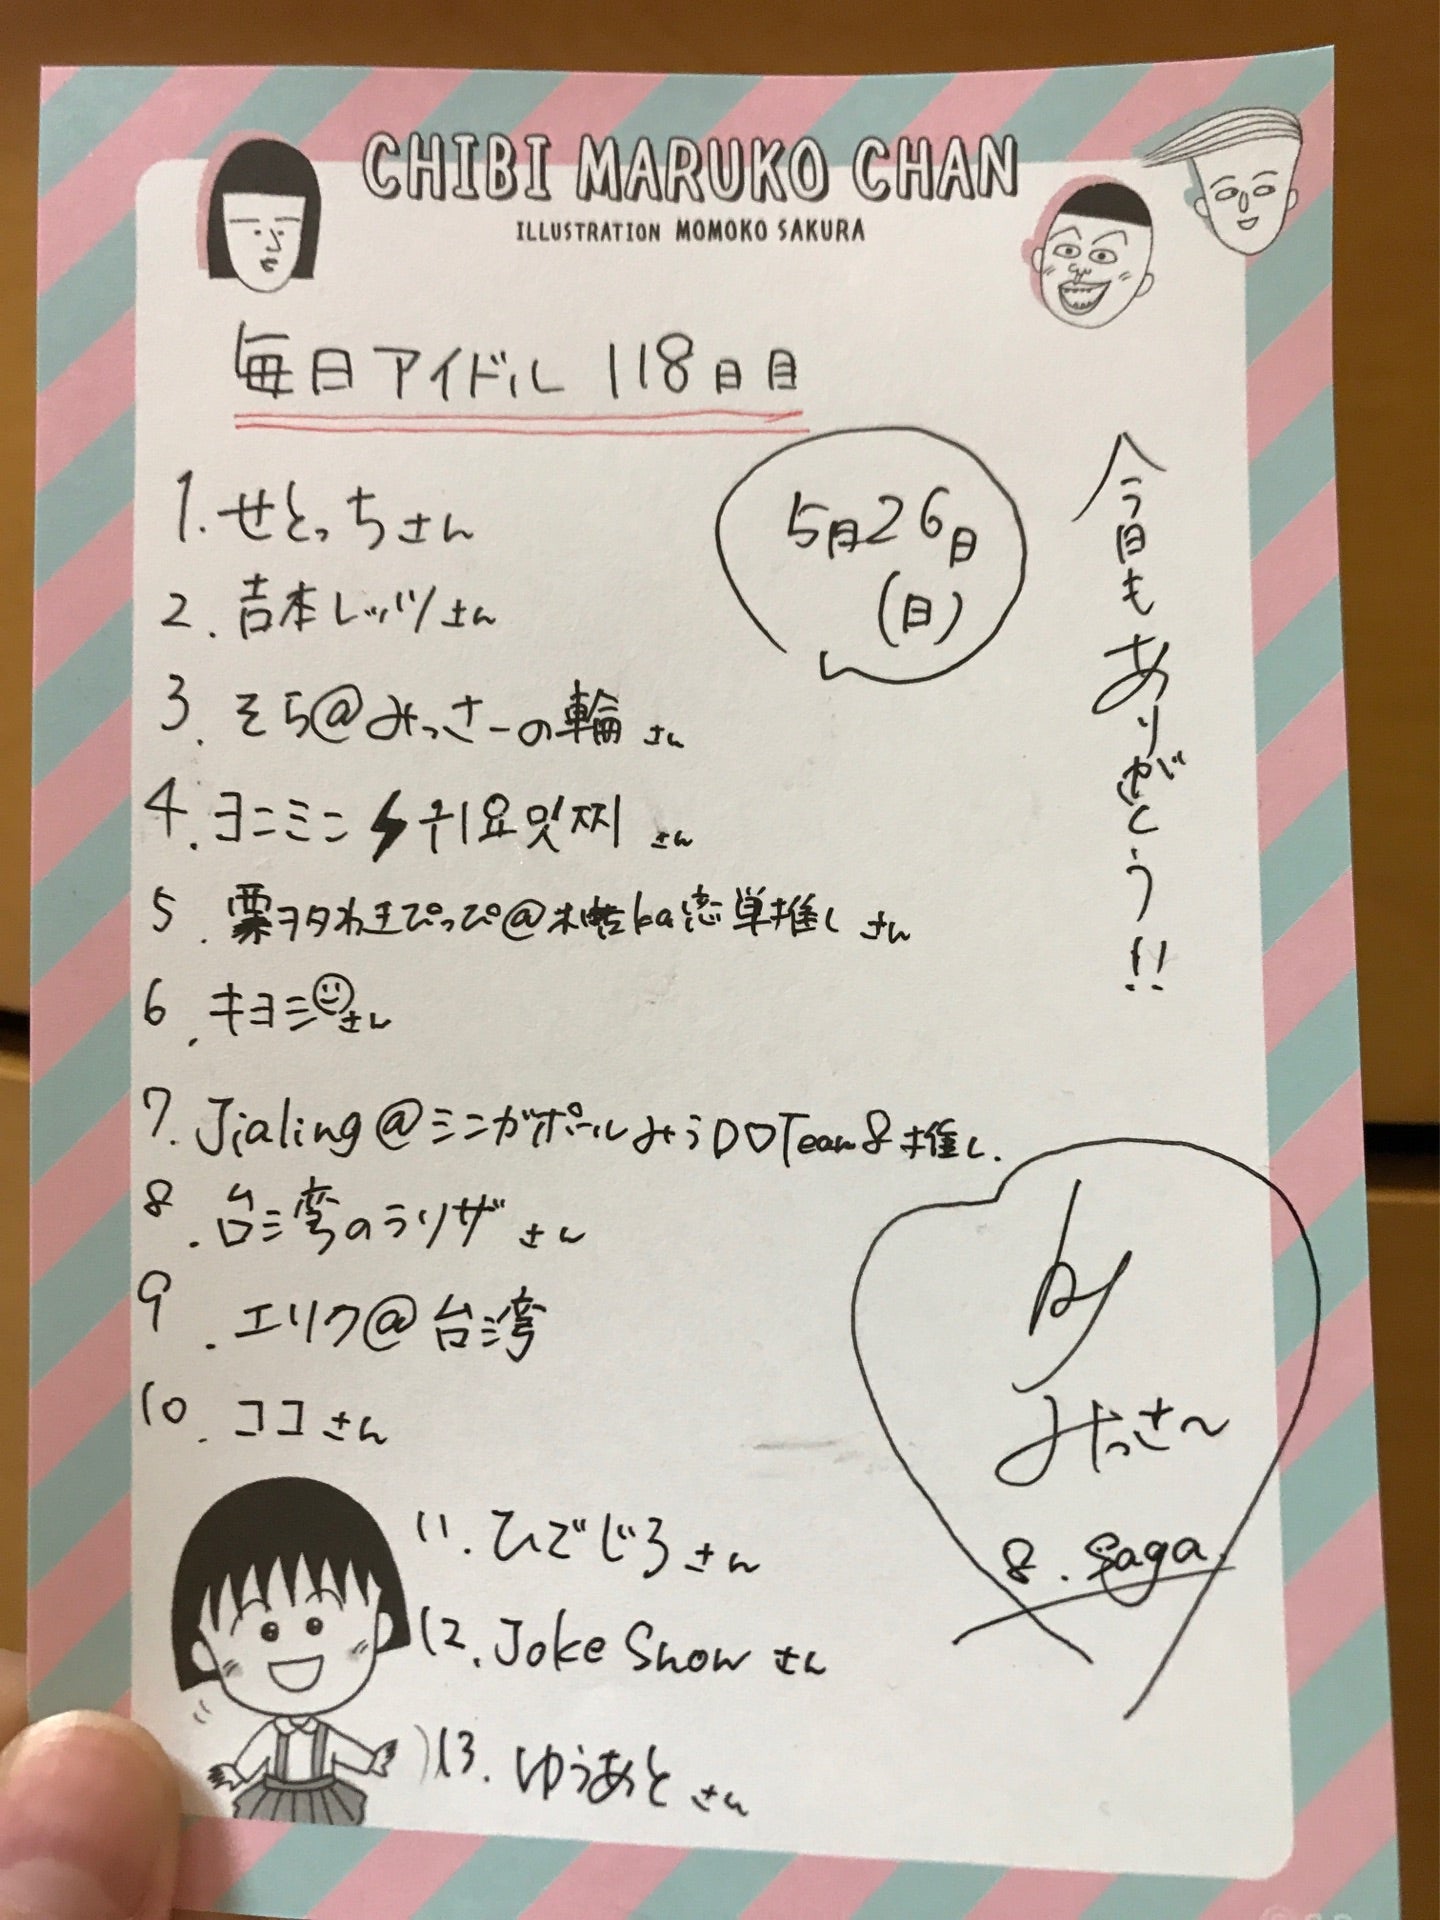 CHIBI MARUKO CHAN
ILLUSTRATION MOMOKO SAKURA
毎日アイドル 118日目
5月26日
(日)
今日もありがとう!!
1. せとっちさん
2. 吉本レッツさん
3. そら@みっさーの輪さん
4. ヨニミン⚡귀요밋찌さん
5. 栗ヲタわきぴっぴ@ 恋単推しさん
6. キヨミ☺さん
7. Jialing@ミンガポールみうDOTeam8推し.
8. 台湾のラリザさん
9. エリク@台湾
10. ココさん
by
みっさ〜
8. Saga.
11. ひでじろさん
12. Joke Showさん
13. ゆうあとさん